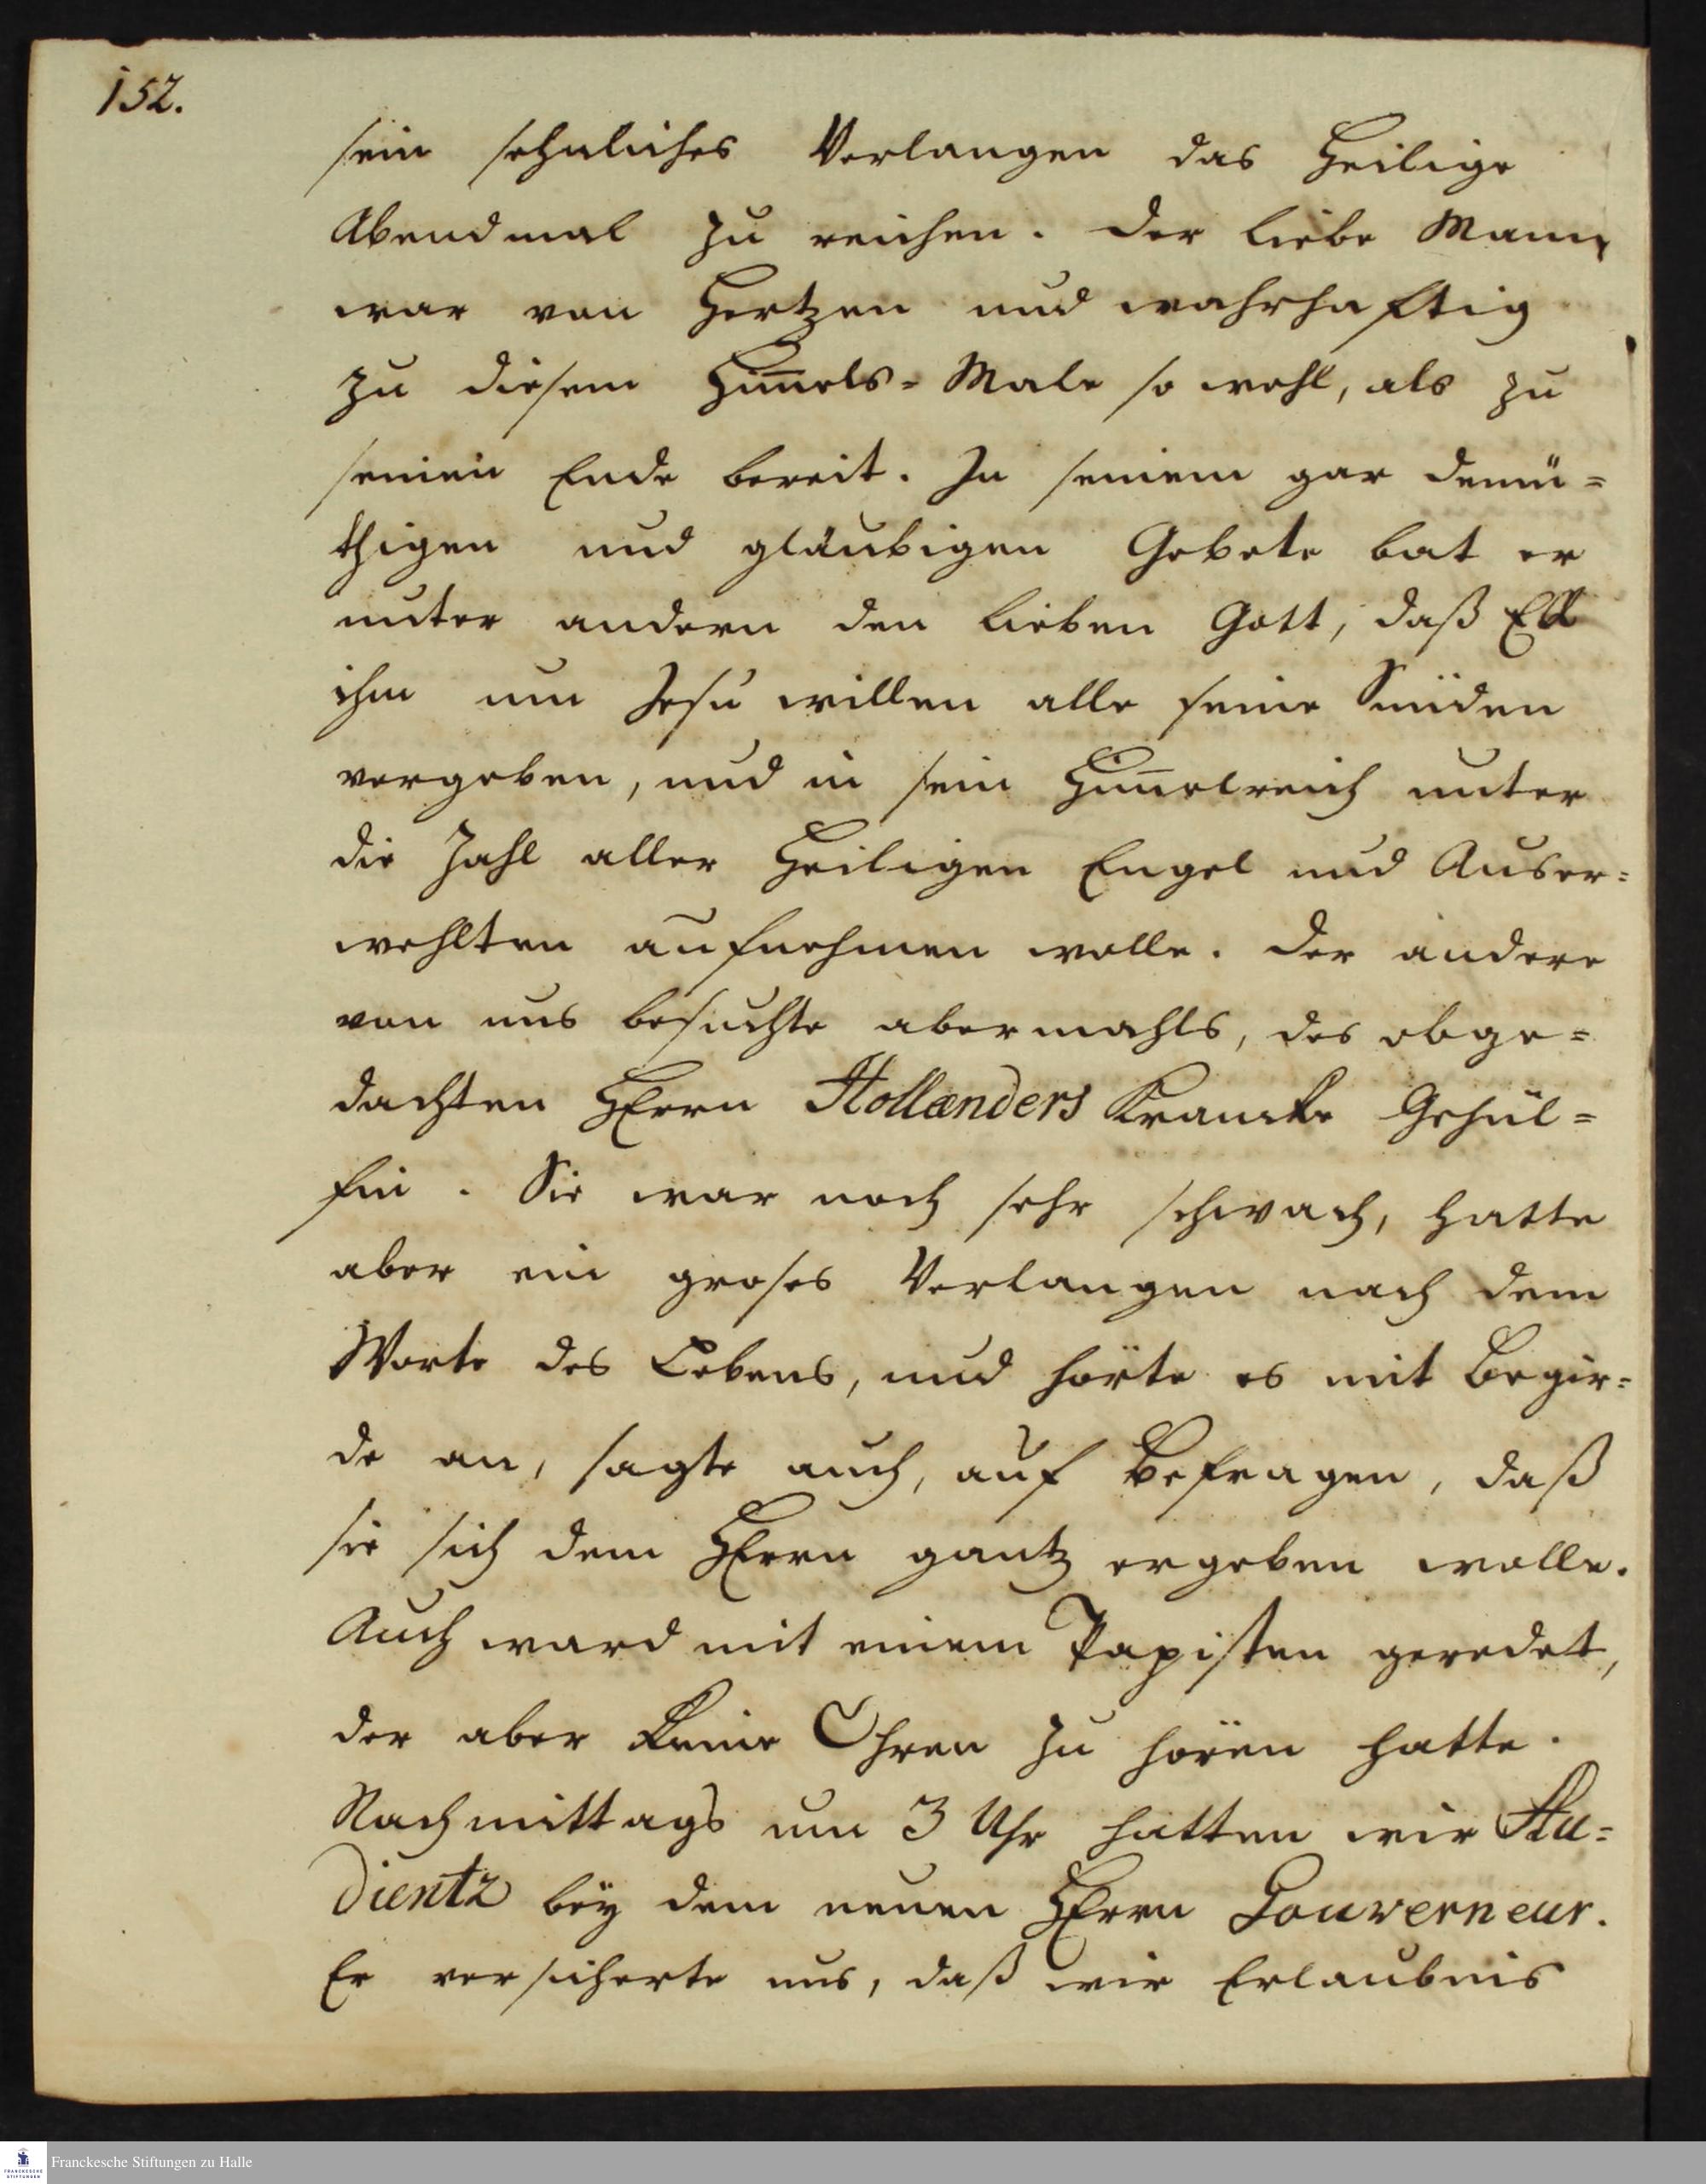 152.
sein sehnliches Verlangen das Heilige
Abendmal zu reichen. Der liebe Mann
war von Hertzen und wahrhafftig
zu diesem Him̅els-Male so wohl, als zu
seinen Ende bereit. In seinem gar demü-
thigen und gläubigen Gebete bat er
unter andern den lieben Gott, daß ER
ihm um Jesu willen alle seine Sünden
vergeben, und in sein Him̅elreich unter
die Zahl aller Heiligen Engel und Auser-
wehlten aufnehmen wolle. Der andere
von uns besuchte abermahls, des obge-
dachten HErrn Hollænders Krancke Gehül-
fin. Sie war noch sehr schwach, hatte
aber ein groses Verlangen nach dem
Worte des Lebens, und hörte es mit Begir-
de an, sagte auch, auf Befragen, daß
sie sich dem HErrn gantz ergeben wolle.
Auch ward mit einem Papisten geredet,
der aber keine Ohren zu hören hatte.
Nachmittags um 3 Uhr hatten wir Au-
dientz bey dem neuen HErrn Gouverneur.
Er versicherte uns, daß wir Erlaubnis
FRANCKESCHE
STIFTUNGEN
Franckesche Stiftungen zu Halle